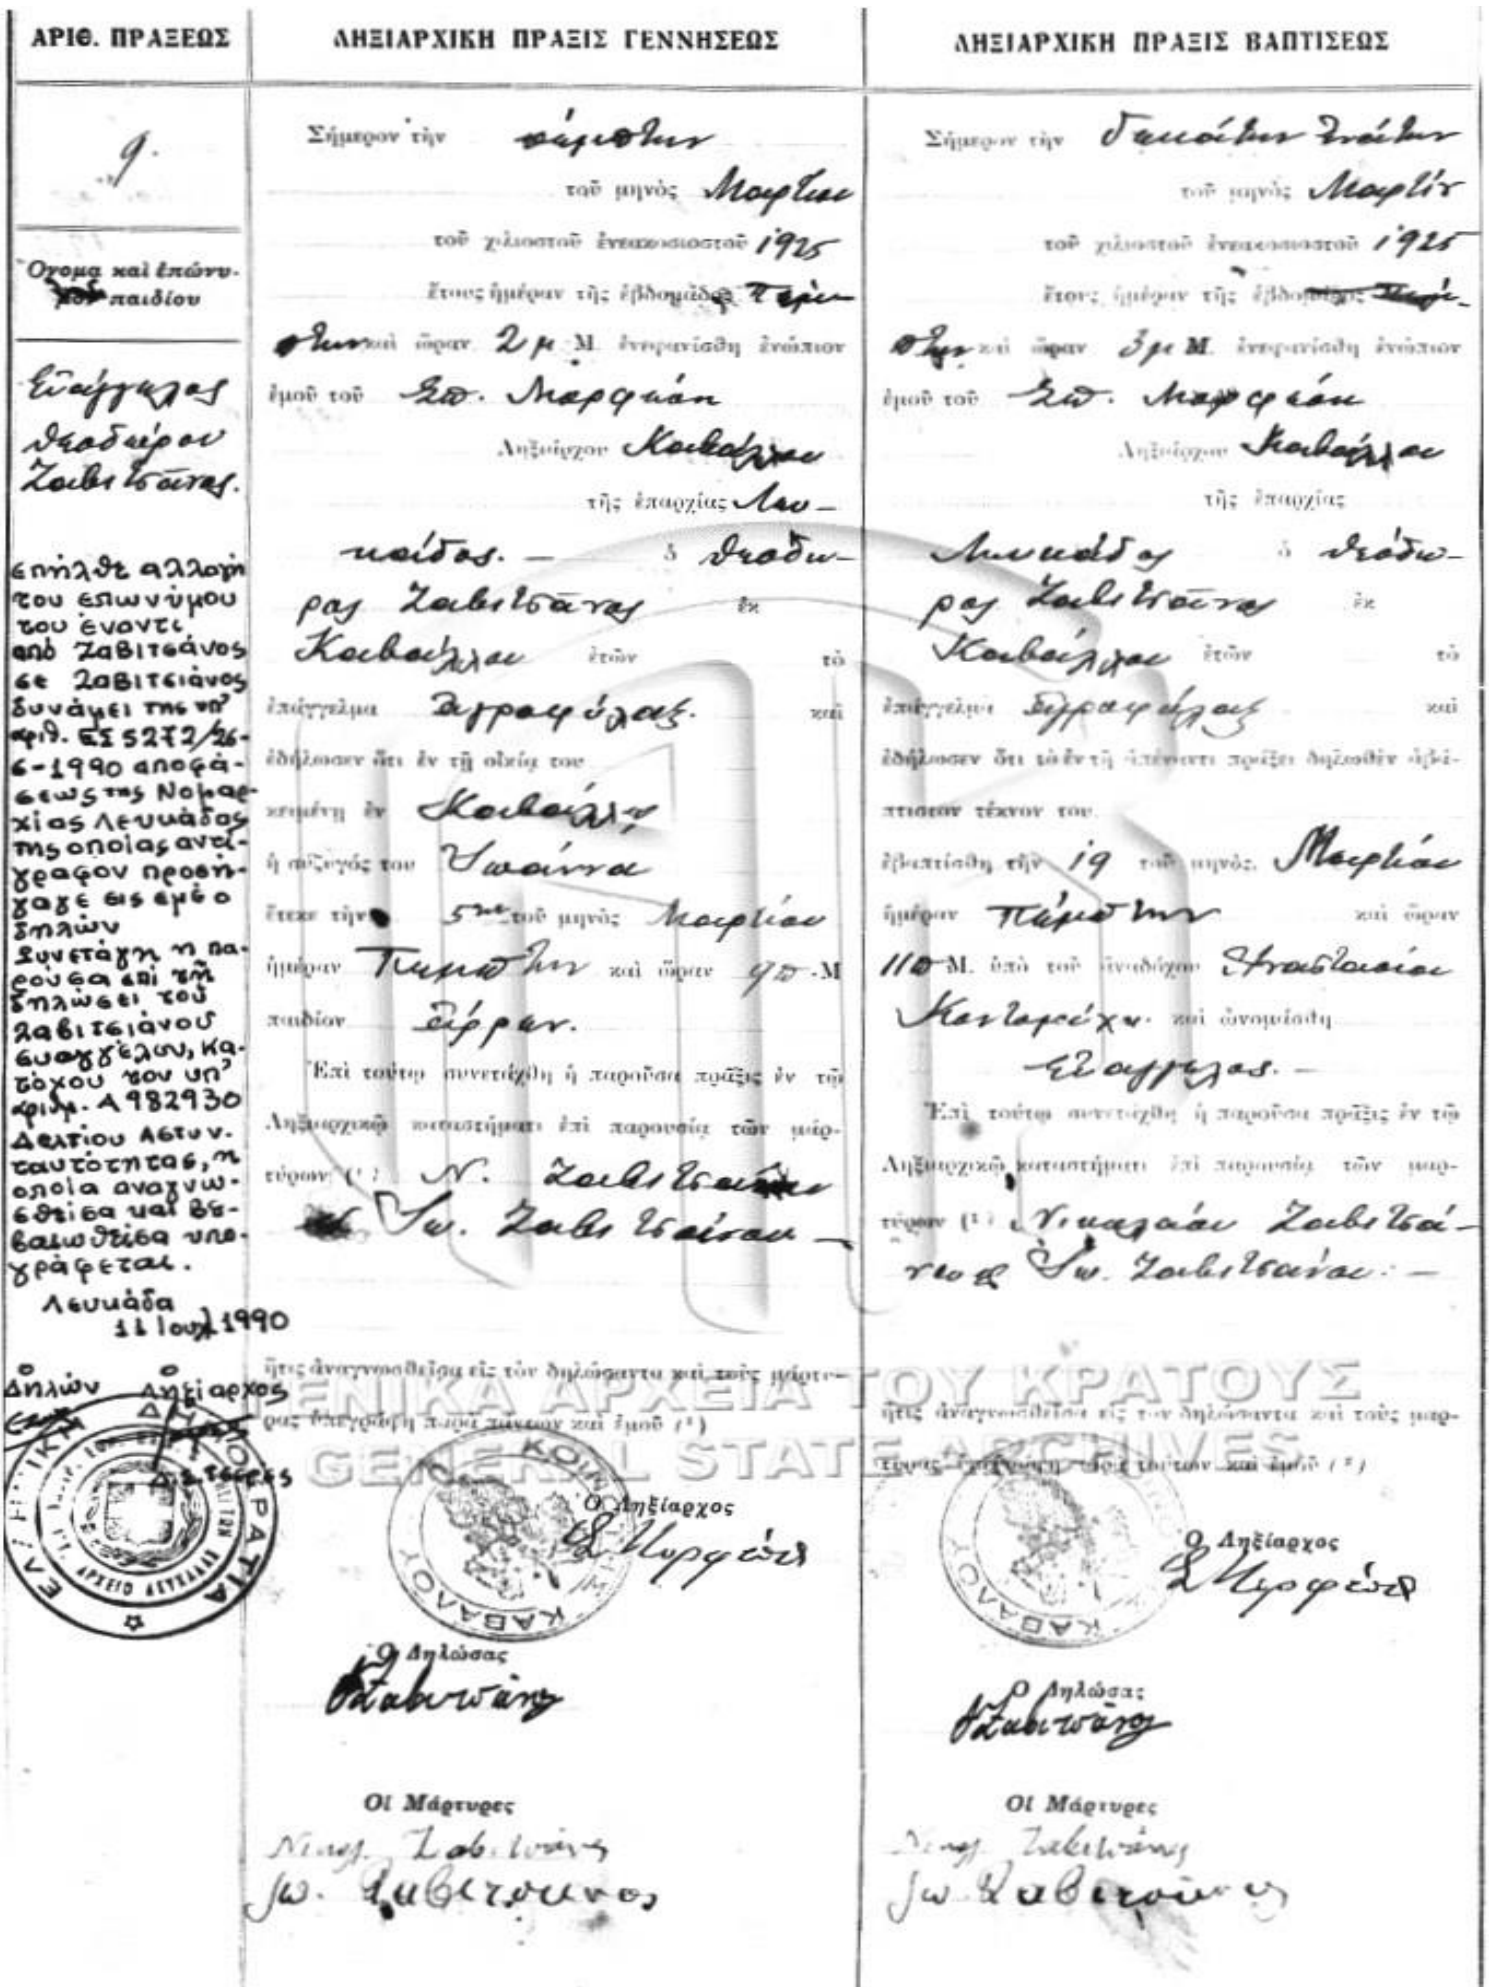 ΑΡΙΘ. ΠΡΑΞΕΩΣ
9.
Ὄνομα καὶ ἐπώνυ-
μον παιδίου
Εὐάγγελος
Θεοδώρου
Ζαβιτσᾶνος.
Επήλθε αλλαγή
του επωνύμου
του έναντι
από Ζαβιτσάνος
σε Σαβιτσιάνος
δυνάμει της υπ'
αριθ. ΕΣ 5272/26-
6-1990 αποφά-
σεως της Νομαρ-
χίας Λευκάδος
της οποίας αντί-
γραφον προσή-
γαγε εις εμέ ο
δηλών
Συνετάγη η πα-
ρούσα επί τη
δηλώσει του
Σαβιτσιάνου
Ευαγγέλου, κα-
τόχου του υπ'
αριθμ. Α 982930
Δελτίου Αστυν.
ταυτότητας, η
οποία αναγνω-
σθείσα και βε-
βαιωθείσα υπο-
γράφεται.
Λευκάδα
11 Ιουλ 1990
Ο Δηλών Ο Ληξίαρχος
ΕΛΛΗΝΙΚΗ ΔΗΜΟΚΡΑΤΙΑ
ΛΗΞΙΑΡΧΙΚΗ ΠΡΑΞΙΣ ΓΕΝΝΗΣΕΩΣ
Σήμερον τὴν πέμπτην
τοῦ μηνὸς Μαρτίου
τοῦ χιλιοστοῦ ἐνεακοσιοστοῦ 1925
ἔτους ἡμέραν τῆς ἑβδομάδος Πέμ-
πτην καὶ ὥραν 2 μ Μ. ἐνεφανίσθη ἐνώπιον
ἐμοῦ τοῦ Σπ. Μορφέση
Ληξιάρχου Καβάλλου
τῆς ἐπαρχίας Λευ-
κάδος. — ὁ Θεόδω-
ρος Ζαβιτσᾶνος ἐκ
Καβάλλου ἐτῶν τὸ
ἐπάγγελμα ἀγροφύλαξ. καὶ
ἐδήλωσεν ὅτι ἐν τῇ οἰκίᾳ του
κειμένῃ ἐν Καβάλλῳ
ἡ σύζυγός του Ἰωάννα
ἔτεκε τὴν 5ην τοῦ μηνὸς Μαρτίου
ἡμέραν Πέμπτην καὶ ὥραν 9 π. Μ
παιδίον ἄρρεν.
Ἐπὶ τούτῳ συνετάχθη ἡ παροῦσα πρᾶξις ἐν τῷ
Ληξιαρχικῷ καταστήματι ἐπὶ παρουσίᾳ τῶν μαρ-
τύρων (¹) Ν. Ζαβιτσάνου
Ἰω. Ζαβιτσάνου —
ἥτις ἀναγνωσθεῖσα εἰς τὸν δηλώσαντα καὶ τοὺς μάρτυ-
ρας ὑπεγράφη παρὰ πάντων καὶ ἐμοῦ (²)
Ὁ Ληξίαρχος
ΚΑΒΑΛΟΥ
Ὁ Δηλώσας
Ζαβιτσάνος
Οἱ Μάρτυρες
Νικολ. Ζαβιτσάνος
Ἰω. Ζαβιτσανος
ΛΗΞΙΑΡΧΙΚΗ ΠΡΑΞΙΣ ΒΑΠΤΙΣΕΩΣ
Σήμερον τὴν δεκάτην ἐνάτην
τοῦ μηνὸς Μαρτίου
τοῦ χιλιοστοῦ ἐνεακοσιοστοῦ 1925
ἔτους ἡμέραν τῆς ἑβδομάδος Πέμ-
πτην καὶ ὥραν 3 μ Μ. ἐνεφανίσθη ἐνώπιον
ἐμοῦ τοῦ Σπ. Μορφέση
Ληξιάρχου Καβάλλου
τῆς ἐπαρχίας
Λευκάδος ὁ Θεόδω-
ρος Ζαβιτσᾶνος ἐκ
Καβάλλου ἐτῶν τὸ
ἐπάγγελμα ἀγροφύλαξ καὶ
ἐδήλωσεν ὅτι τὸ ἐν τῇ ἀπέναντι πράξει δηλωθὲν ἀβά-
πτιστον τέκνον του
ἐβαπτίσθη τὴν 19 τοῦ μηνὸς Μαρτίου
ἡμέραν Πέμπτην καὶ ὥραν
11 π Μ. ὑπὸ τοῦ ἀναδόχου Ἀναστασίου
καὶ ὠνομάσθη
Εὐάγγελος. —
Ἐπὶ τούτῳ συνετάχθη ἡ παροῦσα πρᾶξις ἐν τῷ
Ληξιαρχικῷ καταστήματι ἐπὶ παρουσίᾳ τῶν μαρ-
τύρων (¹) Νικολάου Ζαβιτσά-
νου & Ἰω. Ζαβιτσάνου. —
ἥτις ἀναγνωσθεῖσα εἰς τὸν δηλώσαντα καὶ τοὺς μάρ-
τυρας ὑπεγράφη παρὰ τούτων καὶ ἐμοῦ (²)
Ὁ Ληξίαρχος
ΚΑΒΑΛΟΥ
Ὁ Δηλώσας
Ζαβιτσάνος
Οἱ Μάρτυρες
Νικολ. Ζαβιτσάνος
Ἰω Ζαβιτσάνος
ΓΕΝΙΚΑ ΑΡΧΕΙΑ ΤΟΥ ΚΡΑΤΟΥΣ
GENERAL STATE ARCHIVES